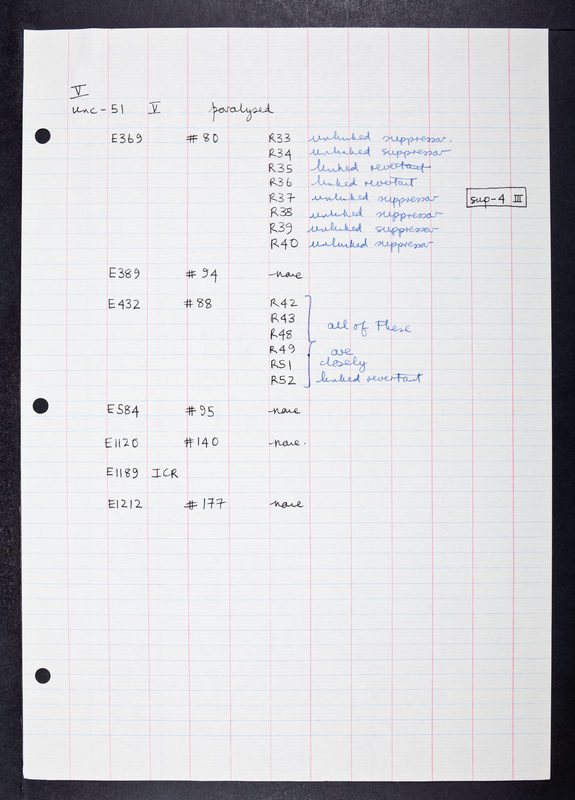 V
unc-51 V paralysed
E369 #80 R33 unlinked suppressor.
R34 unlinked suppressor
R35 linked revertant
R36 linked revertant
R37 unlinked suppressor sup-4 III
R38 unlinked suppressor
R39 unlinked suppressor
R40 unlinked suppressor
E389 #94 none
E432 #88 R42
R43 all of these
R48
R49 are
R51 closely
R52 linked revertant
E584 #95 none
E1120 #140 none.
E1189 ICR
E1212 #177 none